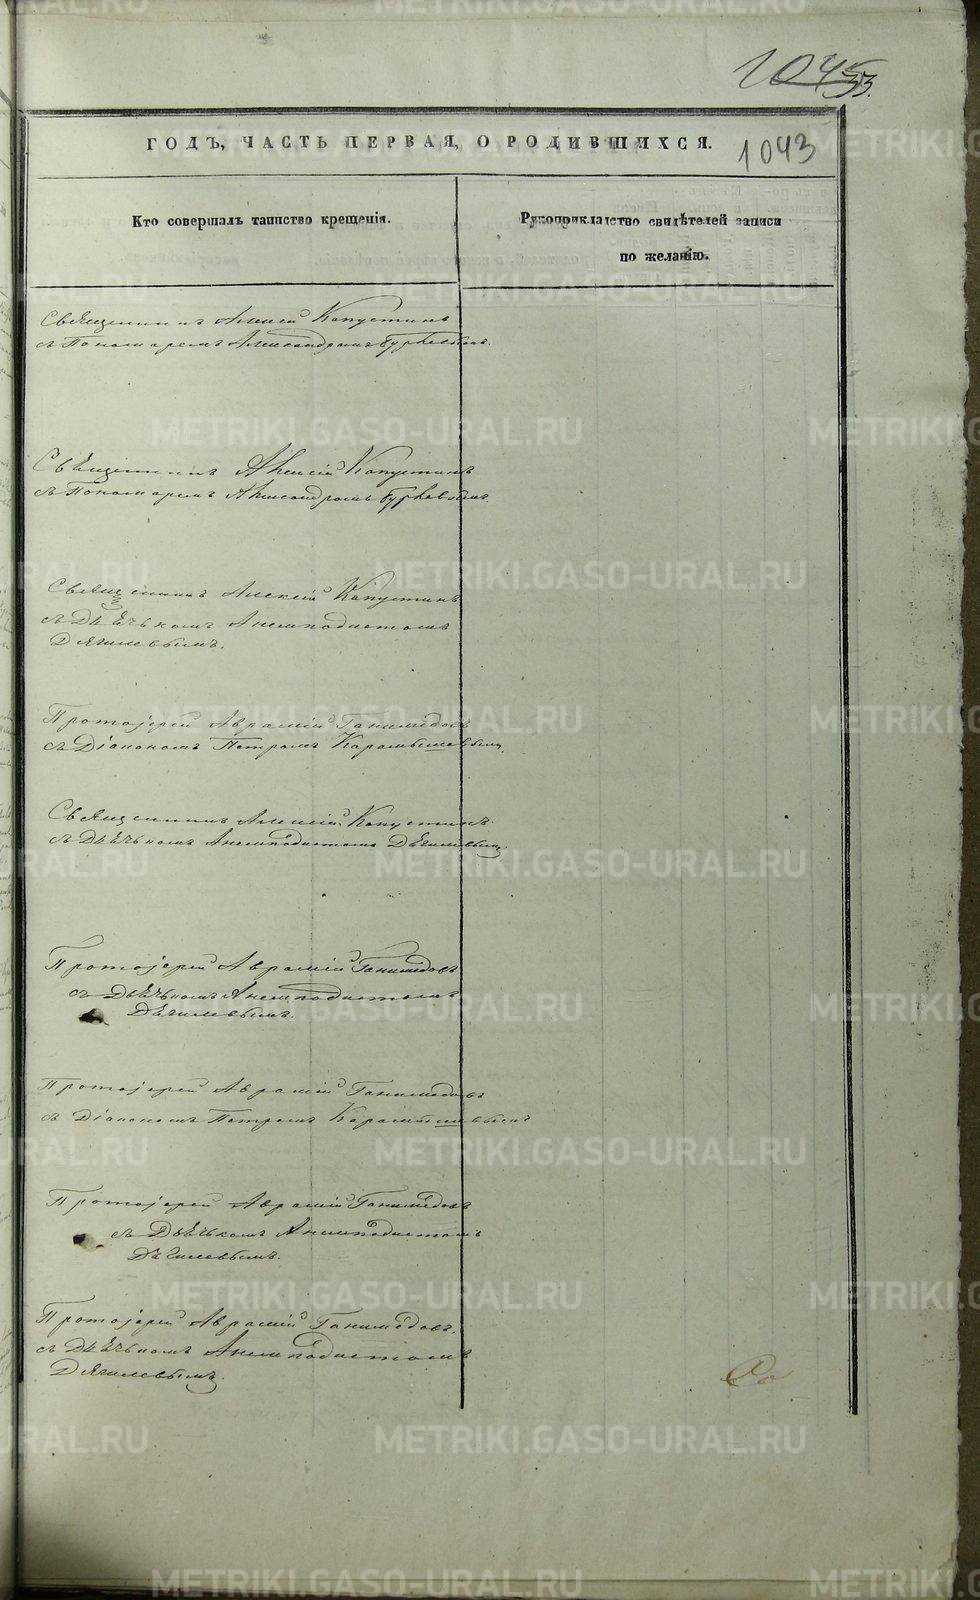 1045
33.
ГОДЪ, ЧАСТЬ ПЕРВАЯ, О РОДИВШИХСЯ.
1043
Кто совершалъ таинство крещенія.
Рукоприкладство свидѣтелей записи
по желанію.
Священникъ Алексій Капустинъ
съ Пономаремъ Александромъ
Священникъ Алексій Капустинъ
съ Пономаремъ Александромъ
Священникъ Алексій Капустинъ
съ Дьячькомъ Анемподистомъ
Дягилевымъ.
Протоіерей Аврамій Ганимедовъ
съ Діакономъ Петромъ Карамышевымъ
Священникъ Алексій Капустинъ
съ Дьячькомъ Анемподистомъ Дягилевымъ
Протоіерей Аврамій Ганимедовъ
съ Дьячькомъ Анемподистомъ
Дягилевымъ.
Протоіерей Аврамій Ганимедовъ
съ Діакономъ Петромъ Карамышевымъ
Протоіерей Аврамій Ганимедовъ
съ Дьячькомъ Анемподистомъ
Дягилевымъ.
Протоіерей Аврамій Ганимедовъ.
съ Дьячькомъ Анемподистомъ
Дягилевымъ.
METRIKI.GASO-URAL.RU